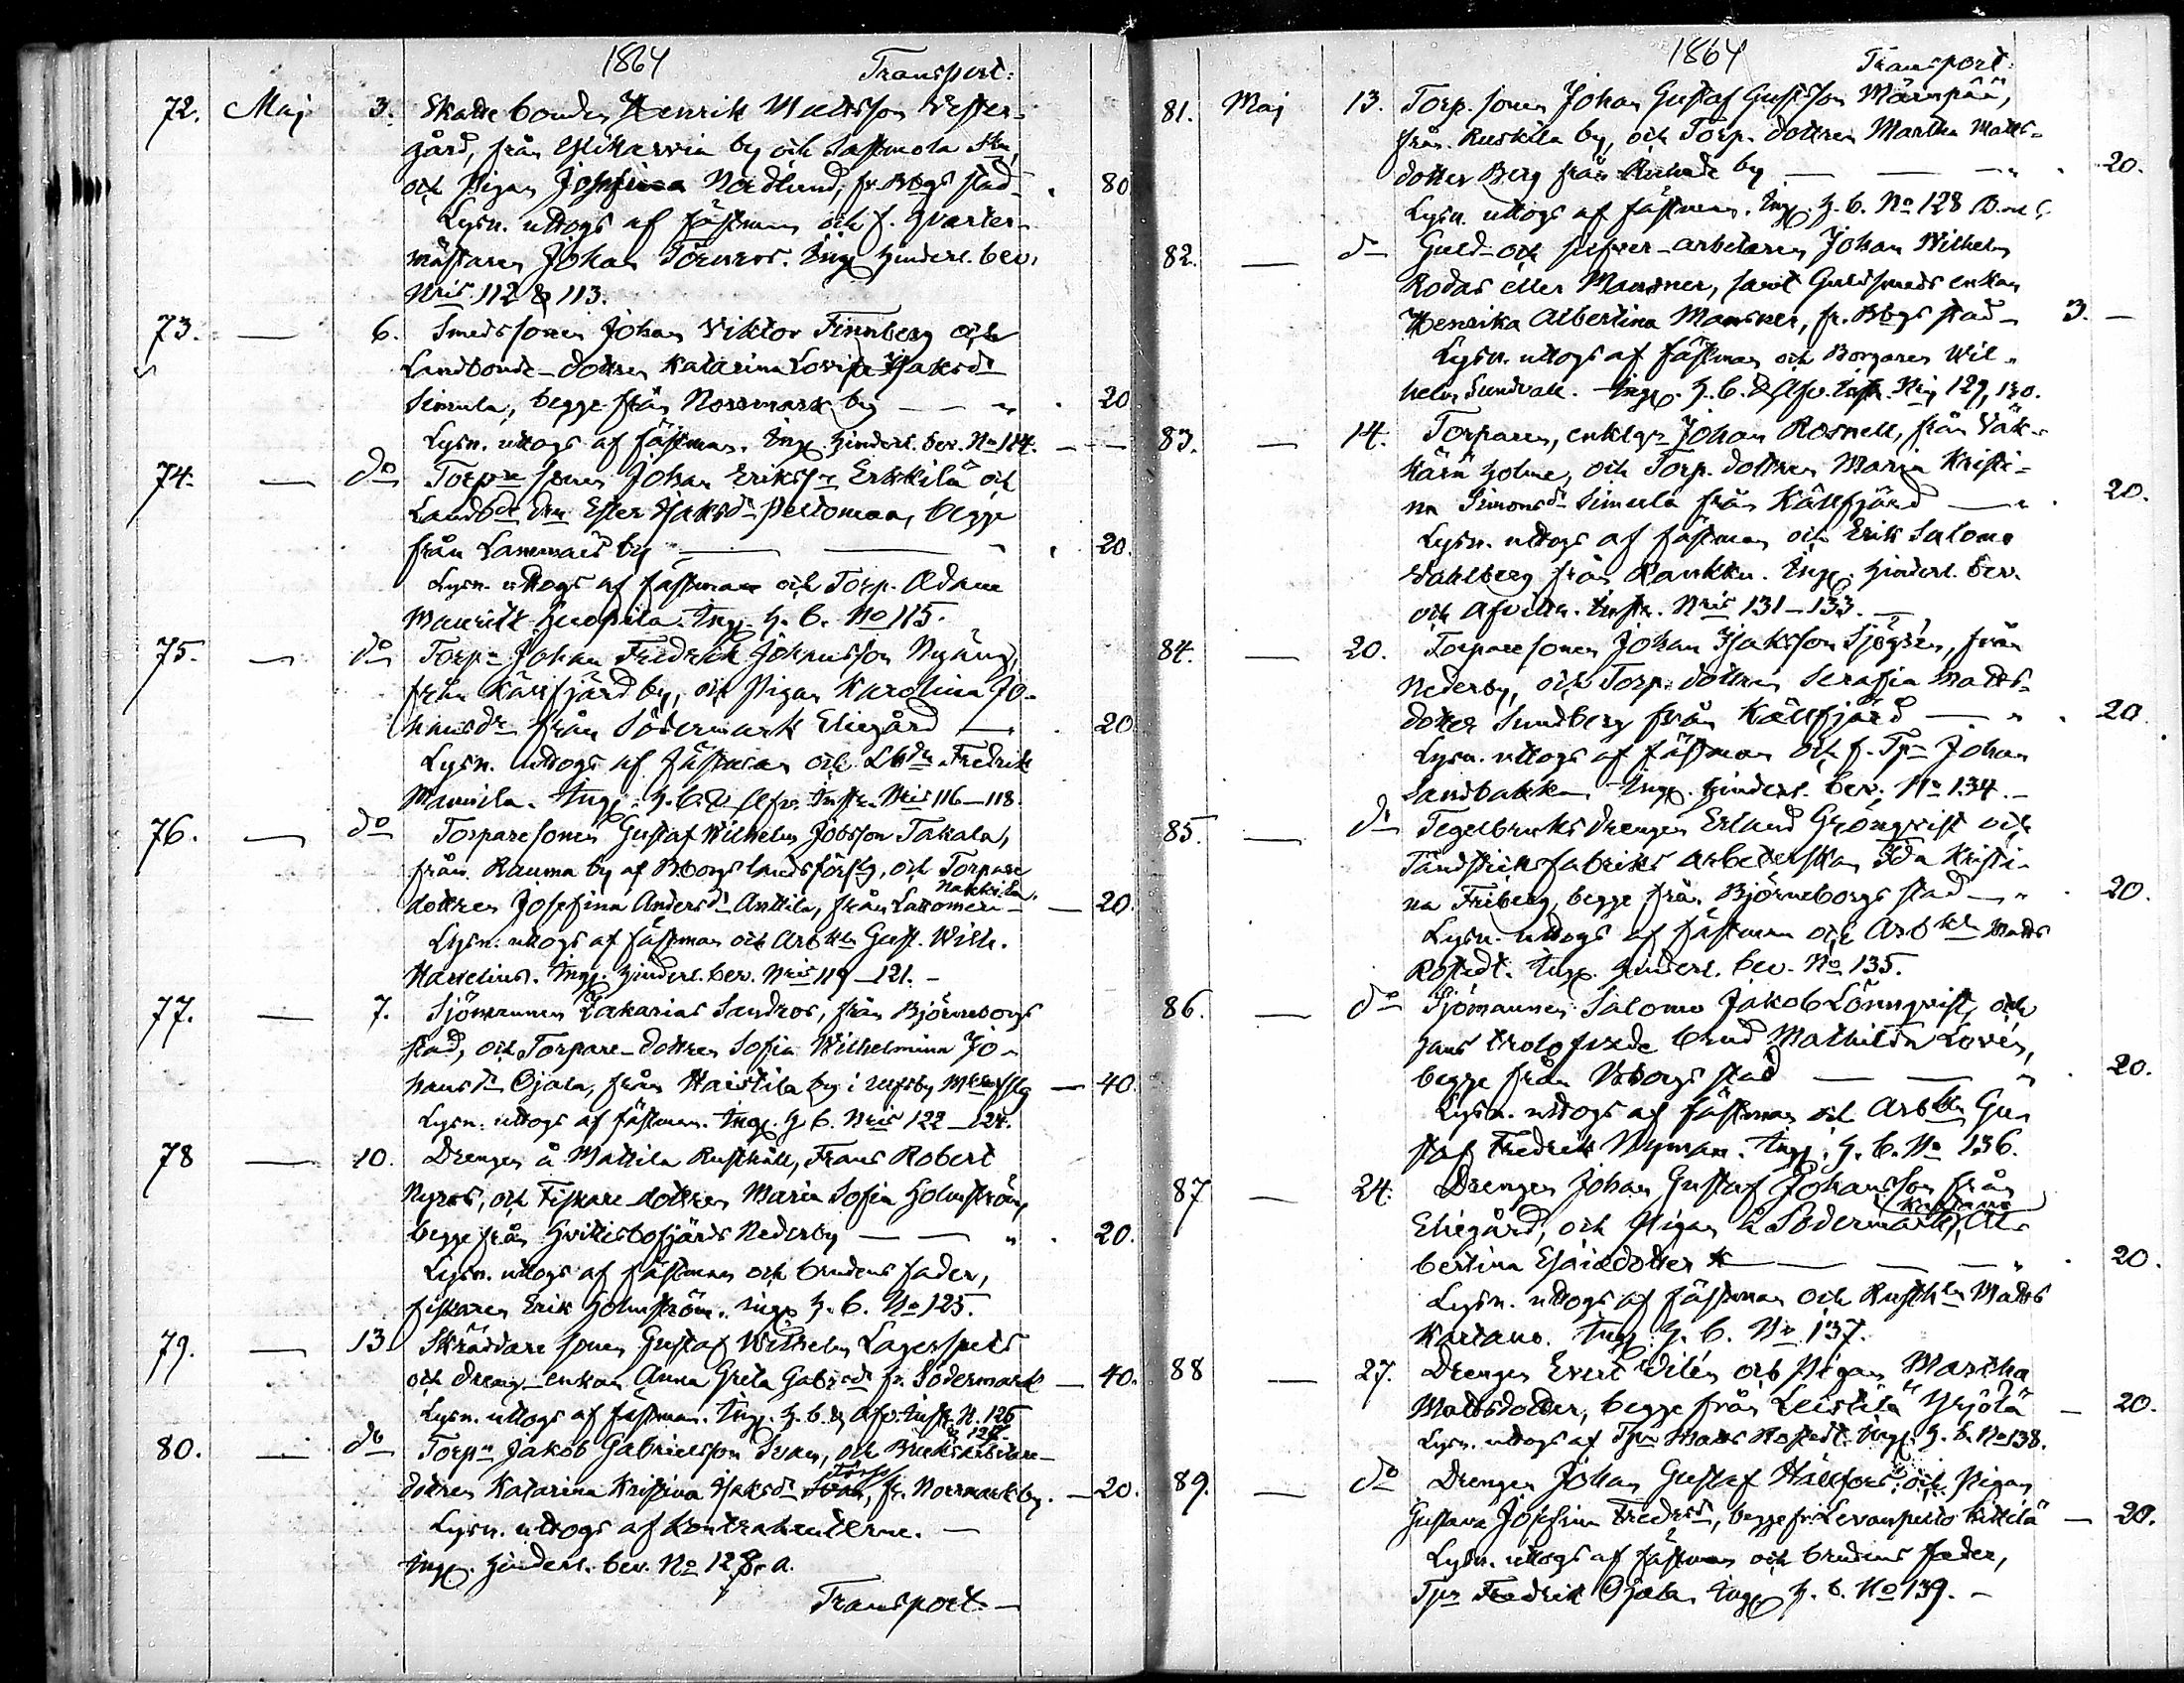 1864
Transport:
72. Maj 3. Skattebonden Henrik Mattsson Vester-
gård, från by och Sastmola Skn,
och Pigan Josefina Nordlund, fr. Bbgs stad - . 80
Lysn. uttogs af fästman och f. qvarter-
mästaren Johan Törnros. Ing. hinderl. bev.
Nris 112 & 113.
73. — 6. Smedssonen Johan Viktor Finnberg och
Landbonde-dottren Katarina Lovisa Isaksdr
Simula, begge från Norrmark by — — " . 20
Lysn. uttogs af fästman. Ing. hinderl. bev. No 114. —
74. — do Torpre sonen Johan Eriksson Erkkilä och
Landbde drn Ester Isaksdr Peltomaa, begge
från Lammais by — — " . 20.
Lysn. uttogs af fästman och Torp. Adam
Mauritz . Ing. h. b. No 115.
75. — do Torpn Johan Fredrik Johansson Nyäng,
från Kärrfjärd by, och Pigan Karolina Jo-
hansdr från Södermark Eliegård — . 20
Lysn. uttogs af fästman och Lbdn Fredrik
Mannila. Ing. h. b. & Afv. Instr. Nris 116–118.
76. — do Torparesonen Gustaf Wilhelm Jobsson Takala,
från Rauma by af Bborgs landsförslg, och Torpare
Nakkila
dottren Josefina Andersdr Anttila, från Lattomeri — 20.
Lysn. uttogs af fästman och Arbkln Gust. Wilh.
Hasselius. Ing. hinderl. bev. Nris 119–121. –
77. — 7. Sjömannen Zakarias Sandros, från Björneborgs
stad, och Torpare-dottren Sofia Wilhelmina Jo-
hansdr Ojala, från Haistila by i Ulfsby — 40.
Lysn. uttogs af fästman. Ing. h. b. Nris 122–124.
78 — 10. Drengen å Mattila Rusthåll, Frans Robert
Nyros, och Fiskare dottren Maria Sofia Holmström,
begge från Hvittisbofjärds Nederby — — " . 20.
Lysn. uttogs af fästman och brudens fader,
fiskaren Erik Holmström. Ing. h. b. No 125.
79. — 13. Skräddare sonen Gustaf Wilhelm Lagerspets
och dreng-enkan Anna Greta Gabrdr fr. Södermark — 40.
Lysn. uttogs af fästman. Ing. h. b. & Afv. Instr. N. 126
& 127.
80. — do Torpn Jakob Gabrielsson Svan, och Bruksarbetare-
dottren Katarina Kristina Isaksdr , fr. Norrmark by. — 20.
Lysn. uttogs af kontrahenterne. —
Ing. hinderl. bev. No 128. a.
Transport. —
1864
Transport:
81. Maj 13. Torp. sonen Johan Gustaf Gustsson Märnpää,
från Ruskila by, och Torp. dottren Martha Matts-
dotter Berg från by — — — " . 20.
Lysn. uttogs af fästman. Ing. h. b. No 128 B.
82. — do Guld- och silfver-arbetaren Johan Wilhelm
Rodas eller Mansner, samt Guldsmeds enkan
Henrika Albertina Mansner, fr. Bbgs stad – 3. –
Lysn. uttogs af fästman och Borgaren Wil-
helm Sundvall. Ing. h. b. & Afv. Inst. Nris 129, 130.
83. — 14. Torparen, enklgn Johan Rosnell, från Väk-
kärä holme, och Torp. dottren Maria Kristi-
na Simonsdr Simula från Källfjärd — " . 20.
Lysn. uttogs af fästman och Erik Salomo
Wahlberg från Pankku. Ing. hinderl. bev.
och afvittr. instr. Nris 131–133. –
84. — 20. Torparesonen Johan Isaksson Sjögren, från
Nederby, och Torp. dottren Serafia Matts-
dotter Sundberg från Källfjärd — " . 20.
Lysn. uttogs af fästman och f. Tpn Johan
Sandbakka. Ing. hinderl. bev. No 134. –
85. — do Tegelbruksdrengen Erland Grönqvist och
Tändsticksfabriks arbeterskan Ida Kristi-
na Friberg, begge från Björneborgs stad — " . 20.
Lysn. uttogs af fästman och Arbkln Matts
Rostedt. Ing. hinderl. bev. No 135.
86. — do Sjömannen Salomo Jakob Lönnqvist, och
hans trolofvade brud Mathilda Lovén,
begge från Bborgs stad — — " . 20.
Lysn. uttogs af fästman och Arbkln Gu-
staf Fredrik Nyman. Ing. h. b. No 136.
87 — 24. Drengen Johan Gustaf Johansson från
Kartano
Eliegård, och Pigan å Södermark, Al-
bertina Esaiædotter — — — " . 20.
Lysn. uttogs af fästman och Rusthln Matts
Kartano. Ing. h. b. No 137.
88 — 27. Drengen Evert Vilén och Pigan Martha
Mattsdotter, begge från Leistilä Yrjölä — 20.
Lysn. uttogs af Tpn Matts Rostedt. Ing. h. b. No 138.
89. — do Drengen Johan Gustaf Hällfors och Pigan
Gustava Josefina Fredrsdr, begge fr. Levanpelto — 20.
Lysn. uttogs af fästman och brudens fader,
Tpn Fredrik Ojala. Ing. h. b. No 139. –